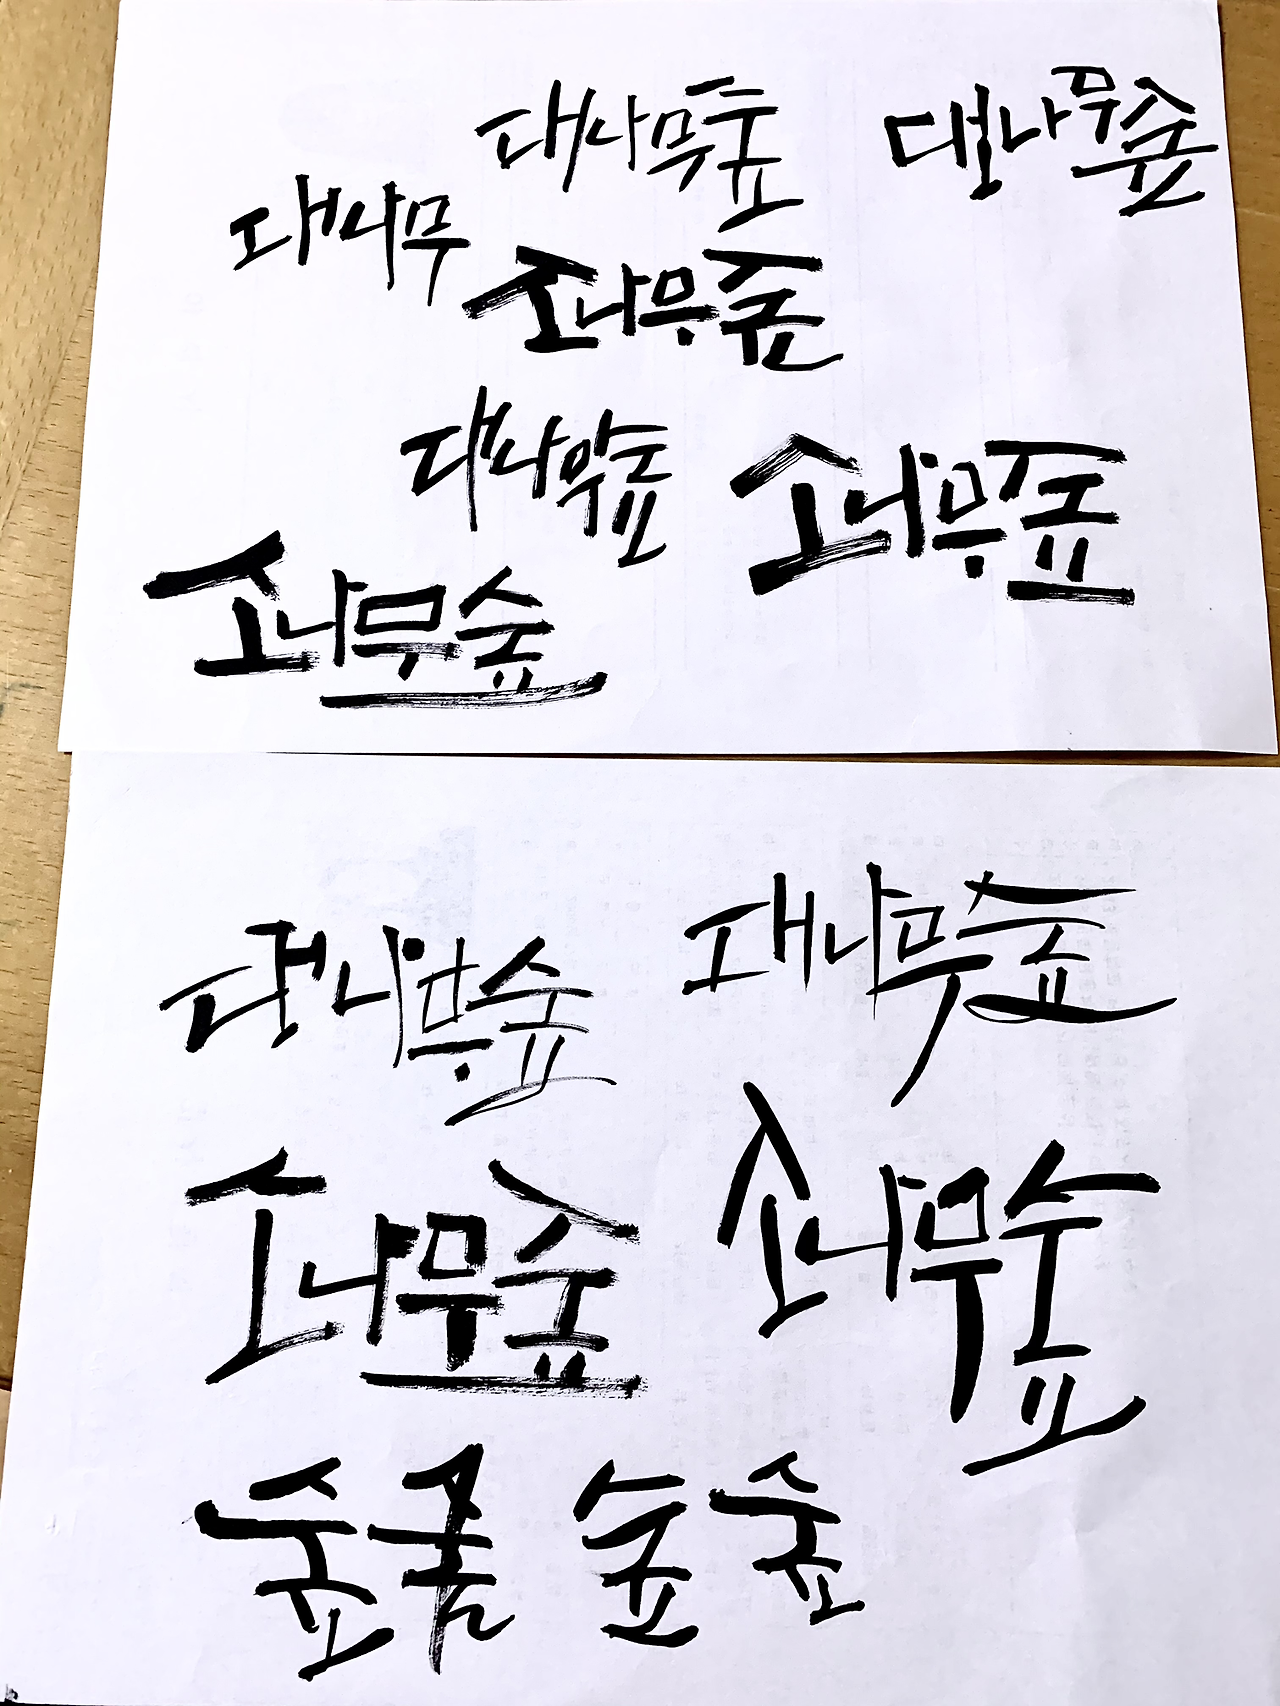 대나무숲 대나무숲
대나무
소나무숲
대나무숲 소나무숲
소나무숲
대나무숲 대나무숲
소나무숲 소나무숲
숲 숲 숲